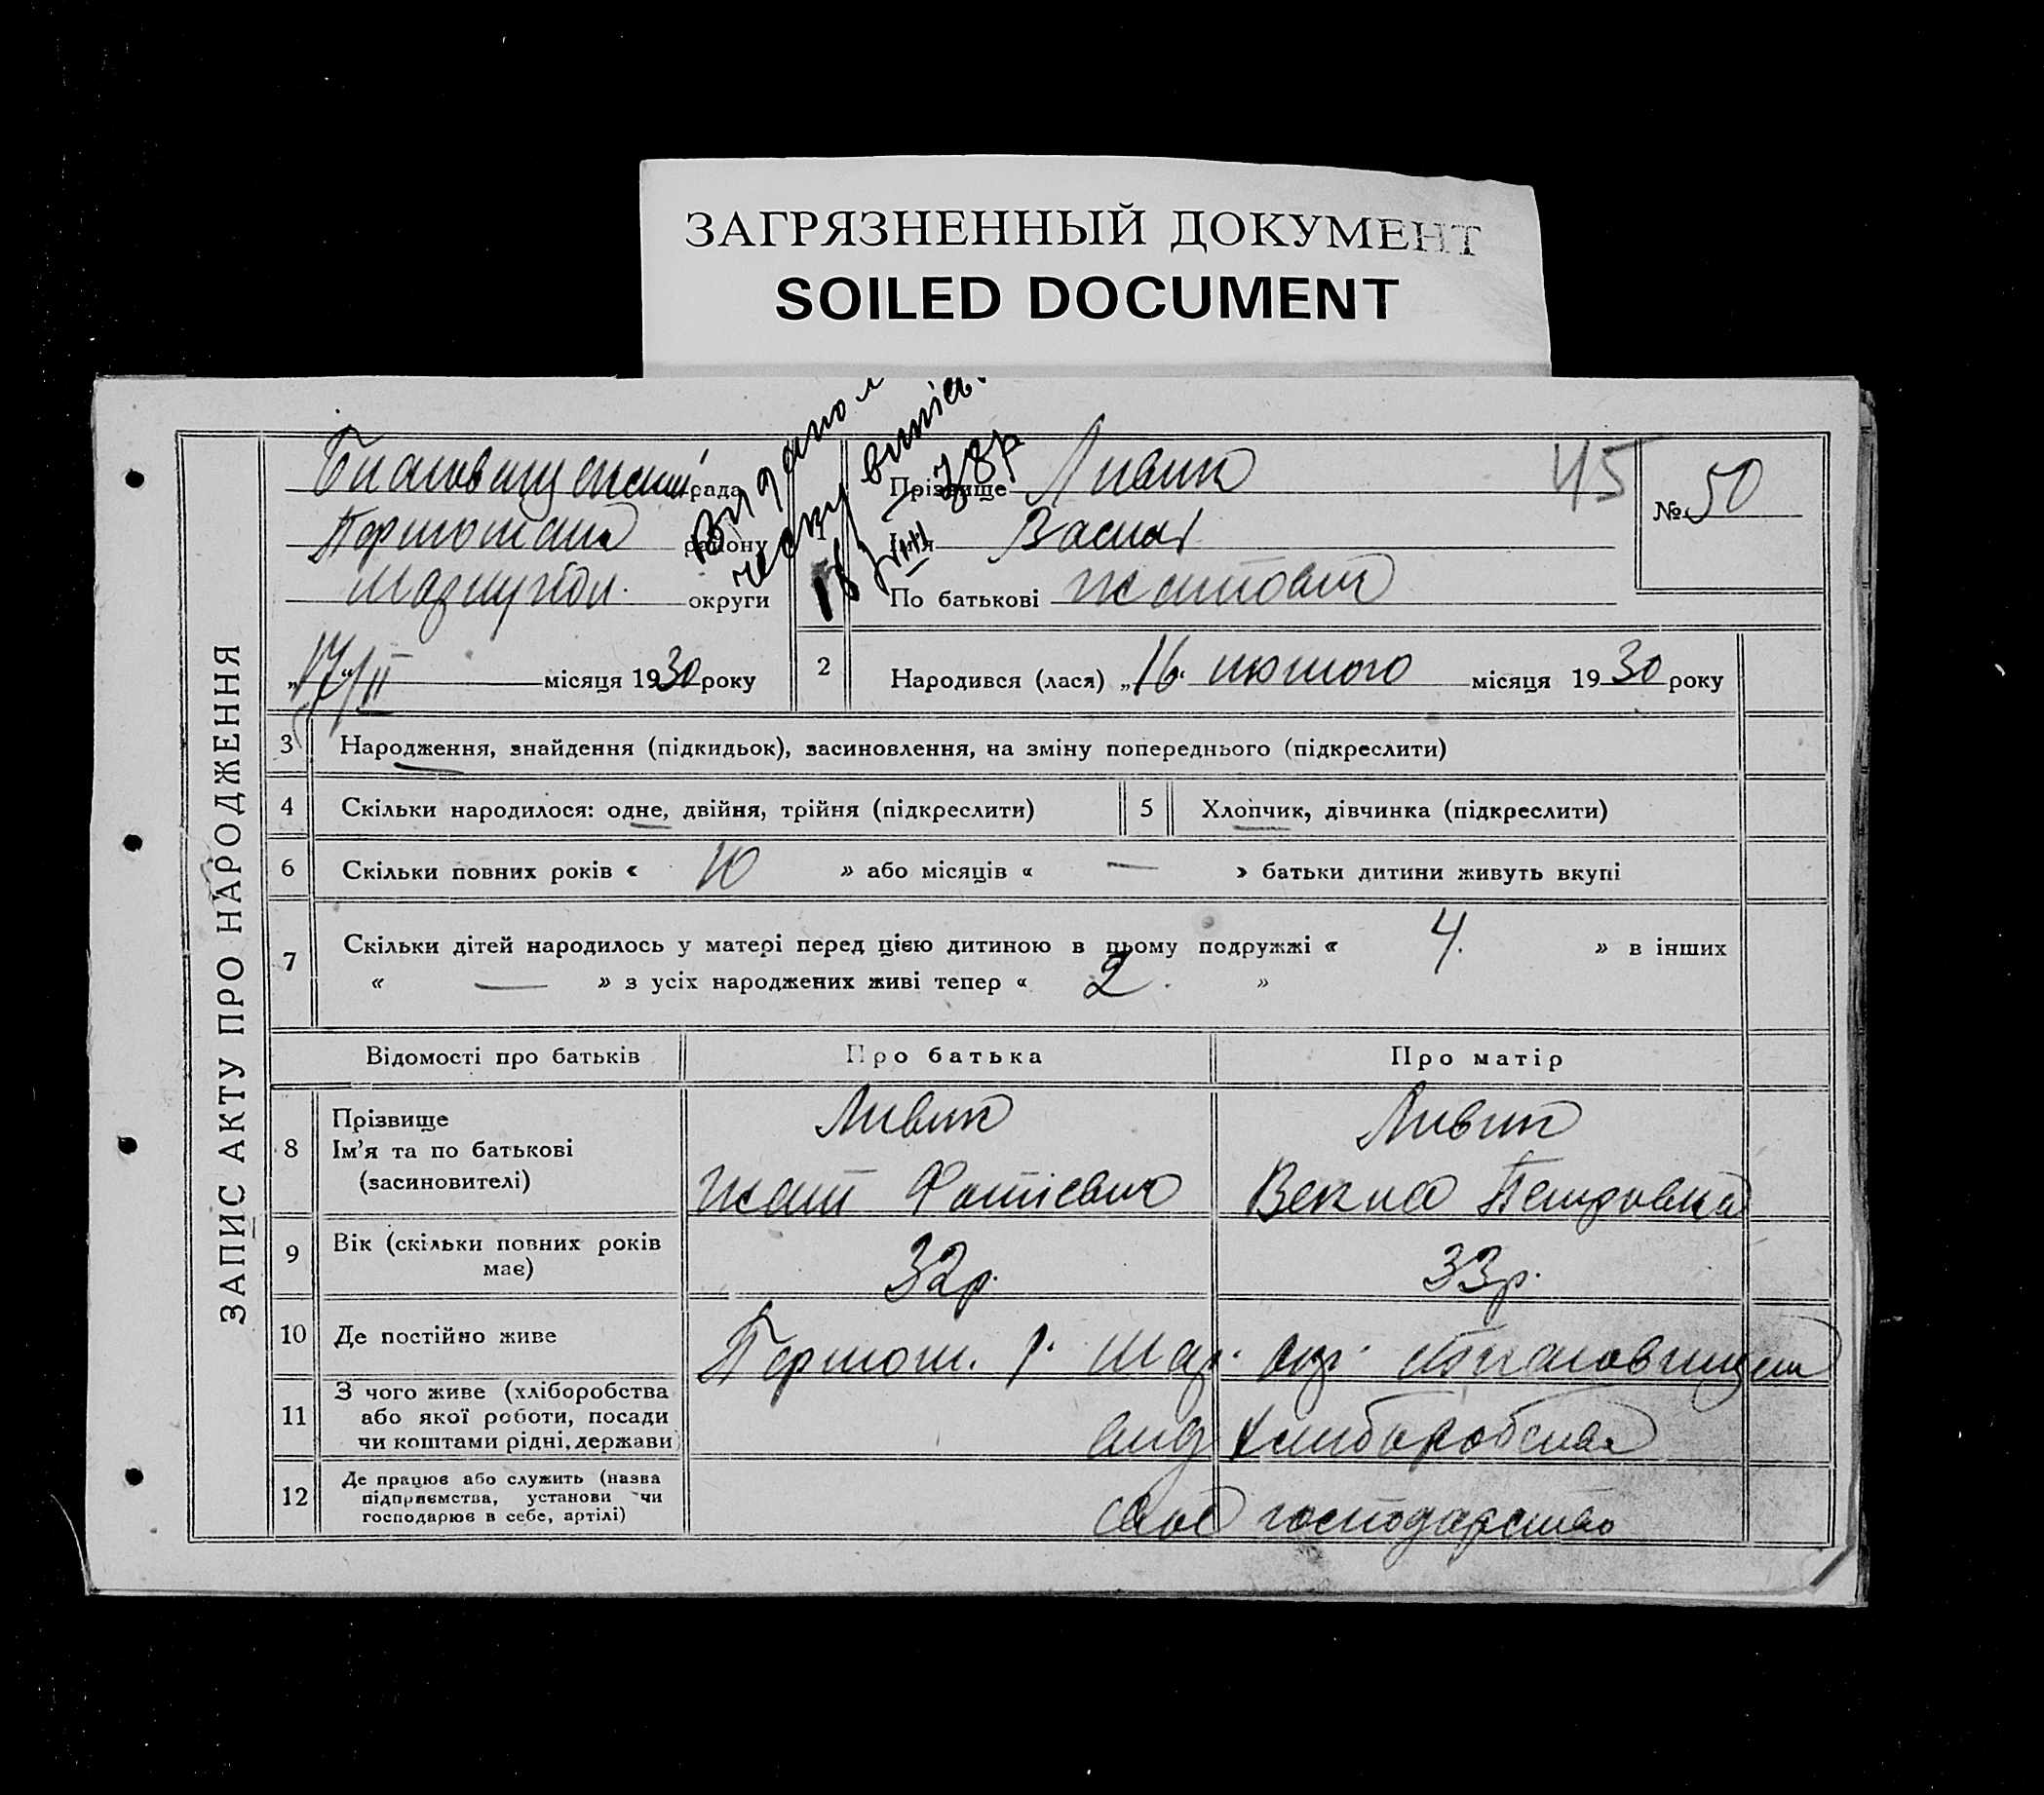 ЗАГРЯЗНЕННЫЙ ДОКУМЕНТ
SOILED DOCUMENT
ЗАПИС АКТУ ПРО НАРОДЖЕННЯ
рада
району
округи
"17/II місяця 1930 року
1
Прізвище Ливик
Ім'я
По батькові
45
№ 50
2
Народився (лася) „16. лютого місяця 1930 року
3 Народження, знайдення (підкидьок), засиновлення, на зміну попереднього (підкреслити)
4 Скільки народилося: одне, двійня, трійня (підкреслити)
5 Хлопчик, дівчинка (підкреслити)
6 Скільки повних років « 10 » або місяців « — » батьки дитини живуть вкупі
7 Скільки дітей народилось у матері перед цією дитиною в цьому подружжі « 4. » в інших
« — » з усіх народжених живі тепер « 2. »
Відомості про батьків
Про батька
Про матір
8
Прізвище
Ім'я та по батькові
(засиновителі)
Ливик
Фотієвич
Ливик
Петровна
9
Вік (скільки повних років
має)
32р.
33р.
10 Де постійно живе
р. Мар. окр.
11
З чого живе (хліборобства
або якої роботи, посади
чи коштами рідні, держави)
12
Де працює або служить (назва
підприємства, установи чи
господарює в себе, артілі)
своє господарство